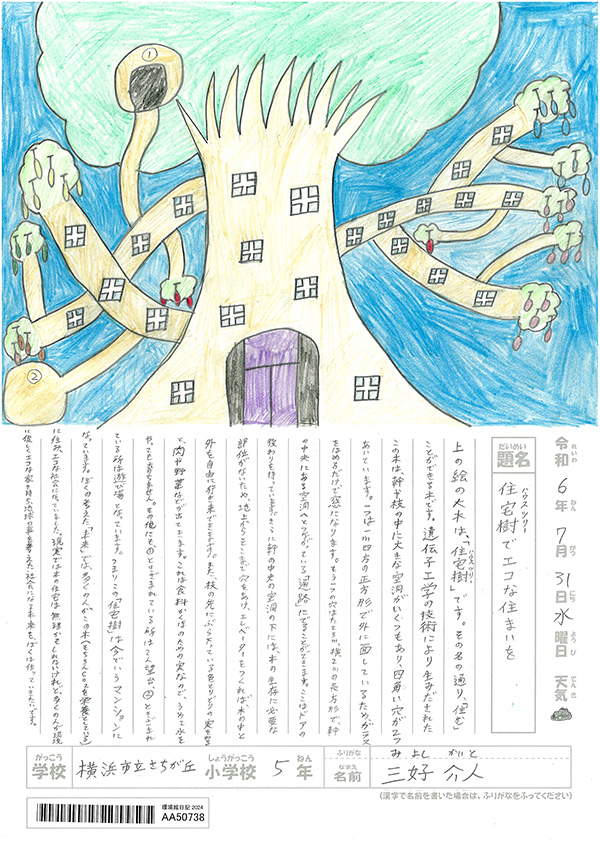 ①
②
令和6年7月31日水曜日 天気
れいわ ねん がつ にち すい ようび てんき
だいめい
題名
ハウスツリー
住宅樹でエコな住まいを
上の絵の大木は、「住宅樹」です。その名の通り、「住む」
ハウスツリー
ことができる木です。遺伝子工学の技術により生みだされた
この木は、幹や枝の中に大きな空洞がいくつもあり、四角い穴が2つ
あいています。一つは一m四方の正方形で外に面しているため、ガラス
をはめるだけで窓になります。もう一つの穴はたて3m、横2mの長方形で、幹
の中央にある空洞へとつながっている「通路」にでることができます。ここはドアの
役わりを持っています。さらに幹の中央の空洞の下には、木の生存に必要な
部位がないため、地上からここまで穴をあけ、エレベーターをつくれば、木の中と
外を自由に行き来できます。また、枝の先にぶら下っている色とりどりの実をとる
と、肉や野菜などが出てきます。これは食料のための実なので、うめて水を
やっても育ちません。その他に①とかかれている所はてん望台、②とかかれ
ている所は遊び場となっています。つまりこの「住宅樹」は今でいうマンションに
なっています。ぼくの考えた「未来」では、多くの人がこの木(もちろんCO2を栄養としている)
に住み、エコな社会になっていました。現実では木の住宅は無理かもしれないけれど、多くの人が環境
に優しくエコな家を持ち、地球の事を考えた社会になる未来を、ぼくは作っていきたいです。
がっこう
学校
横浜市立さちが丘
しょうがっこう
小学校
5
ねん
年
ふりがな
みよし かいと
なまえ
名前
三好 介人
(漢字で名前を書いた場合は、ふりがなをふってください)
環境絵日記2024
AA50738